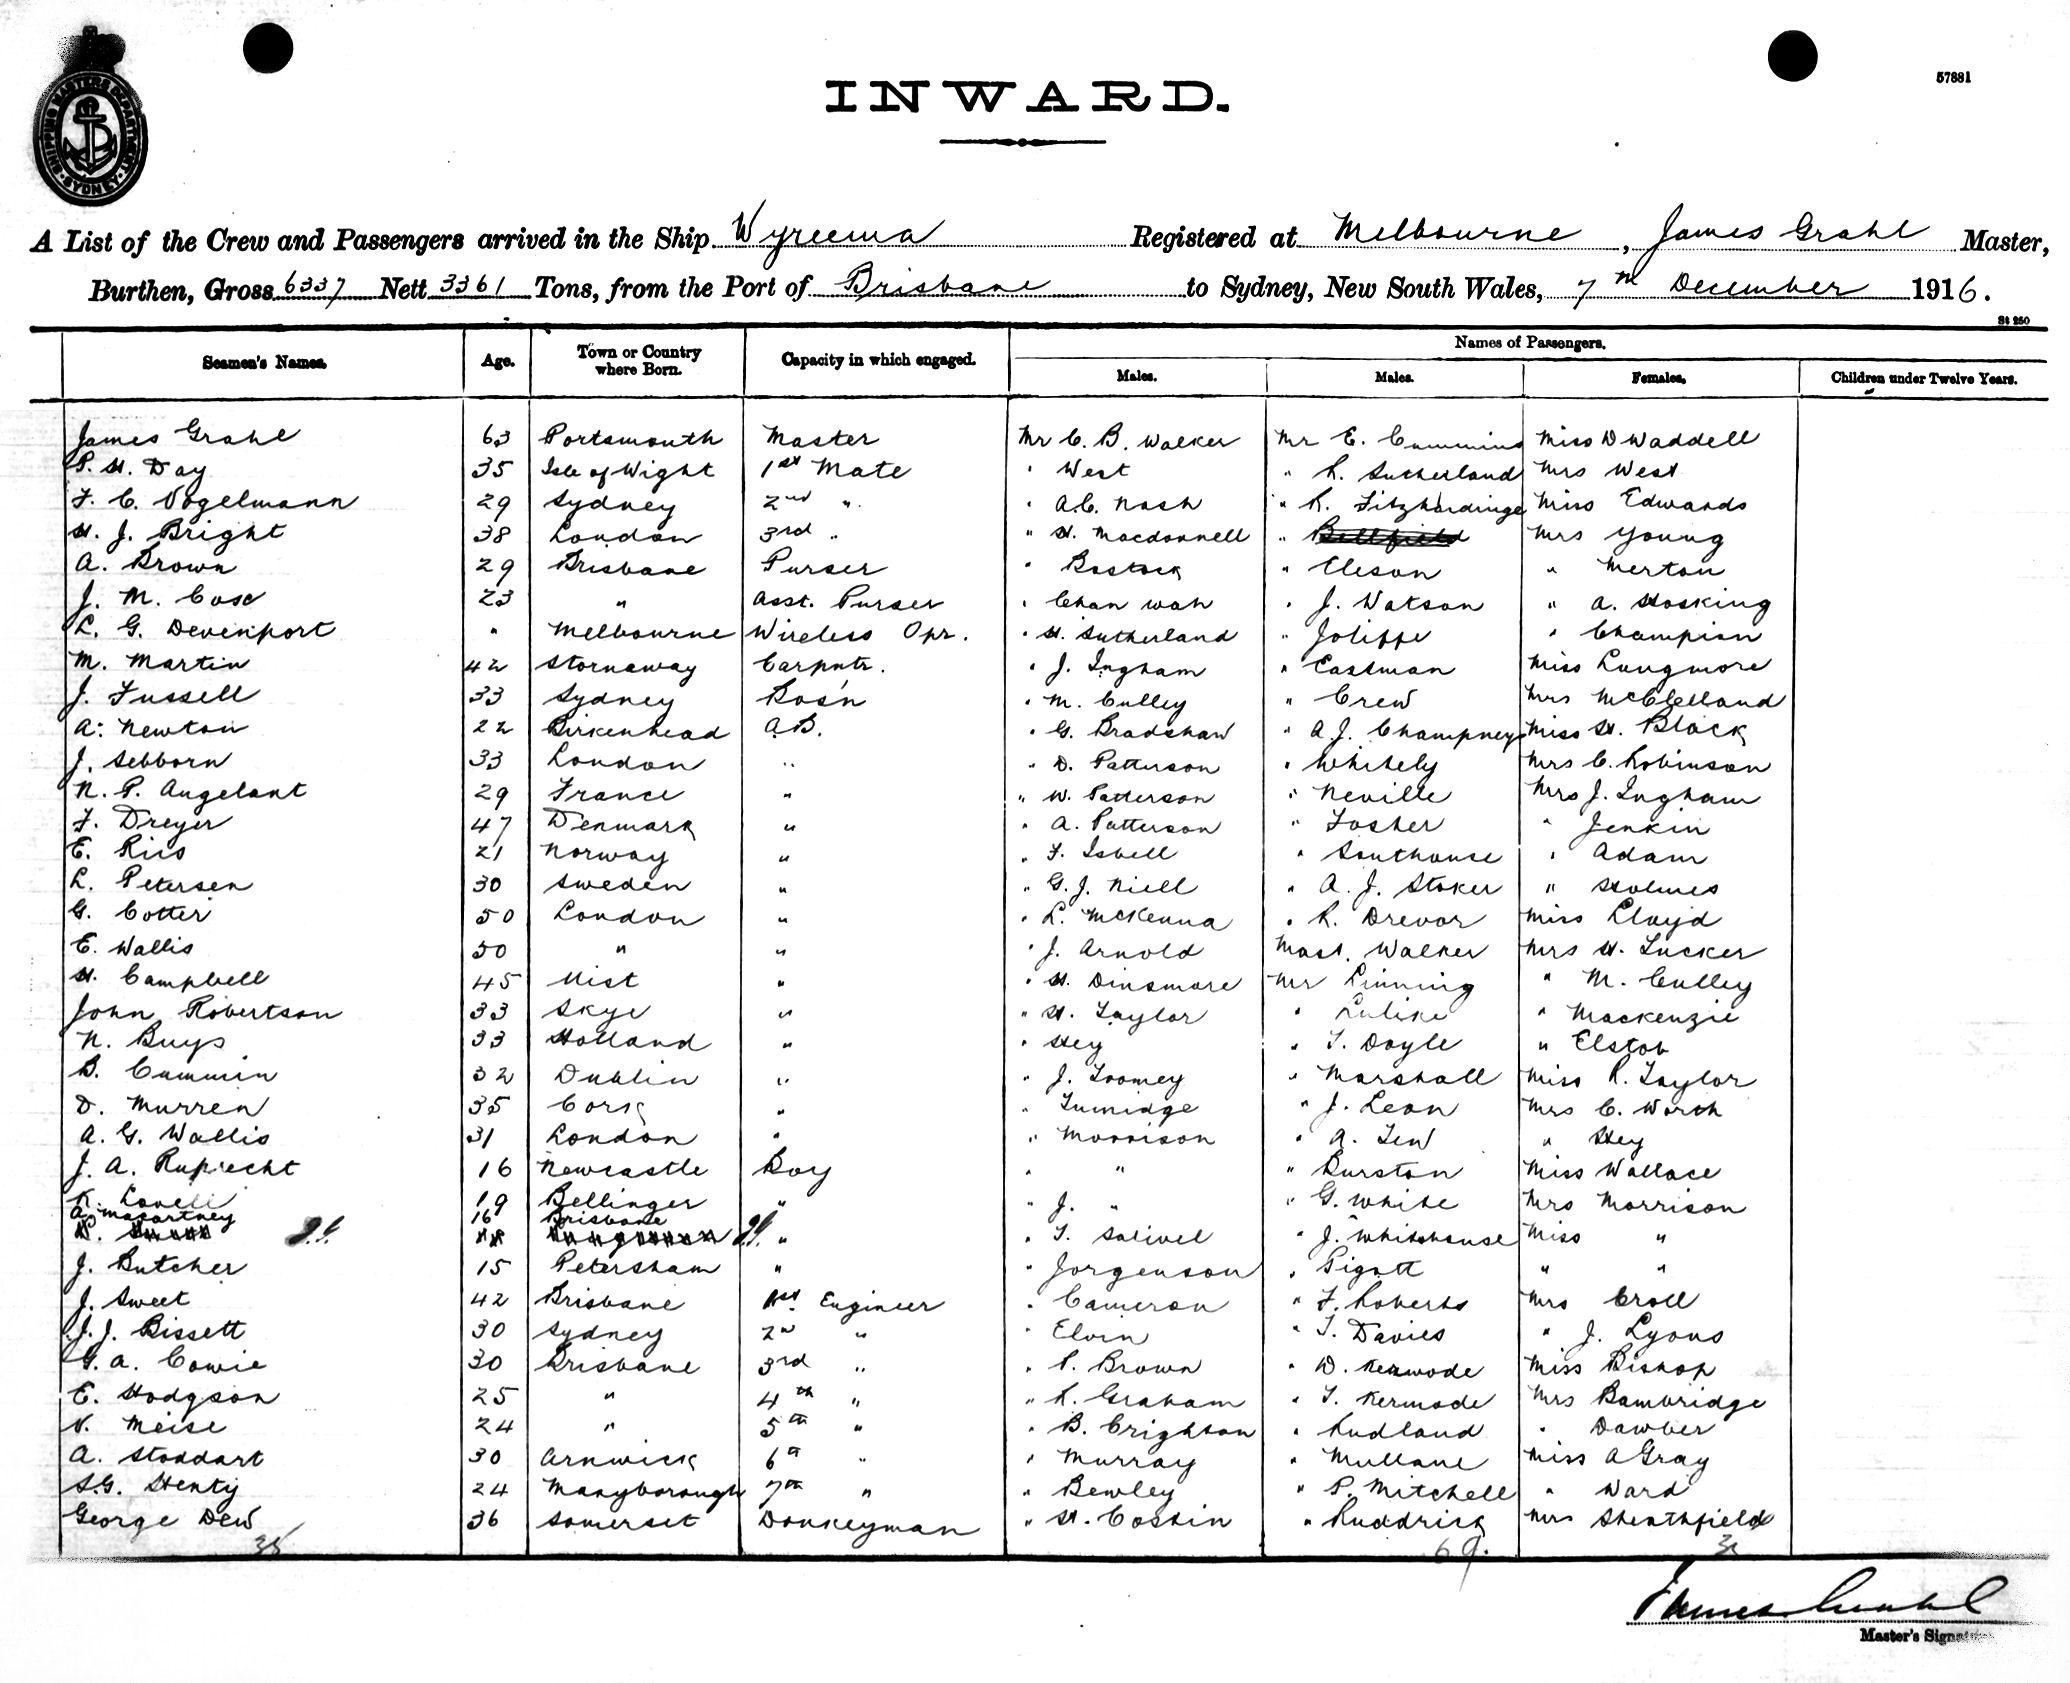 SHIPPING MASTERS DEPARTMENT SYDNEY
57881
INWARD.
A List of the Crew and Passengers arrived in the Ship Wyreema Registered at Melbourne, James Grahl Master,
Burthen, Gross 6337 Nett 3361 Tons, from the Port of Brisbane to Sydney, New South Wales, 7th December 1916.
St 250
Seamen's Names. Age. Town or Country where Born. Capacity in which engaged. Names of Passengers.
Males. Males. Females. Children under Twelve Years.
James Grahl 63 Portsmouth Master Mr C. B. Walker Mr E. Cummins Miss D Waddell
P. H. Day 35 Isle of Wight 1st Mate " West " R. Sutherland Mrs West
F. C. Vogelmann 29 Sydney 2nd " " A.C. Nash " R. Fitzhardinge Miss Edwards
H. J. Bright 38 London 3rd " " H. Macdonnell " Bellfield Mrs Young
A. Brown 29 Brisbane Purser " Bostock " Eleson " Merton
J. M. Cose 23 " Asst. Purser " Chan Wah " J. Watson " A. Hosking
L. G. Devenport " Melbourne Wireless Opr. " H. Sutherland " Joliffe " Champion
M. Martin 42 Stornaway Carpntr. " J. Ingham " Eastman Miss Longmore
J. Fussell 33 Sydney Bos'n " M. Culley " Crew Mrs McClelland
A. Newton 22 Birkenhead A.B. " G. Bradshaw " A.J. Champneys Miss H. Black
J. Sebborn 33 London " " D. Patterson " Whitely Mrs C. Robinson
N. P. Angelant 29 France " " W. Patterson " Neville Mrs J. Ingham
F. Dreyer 47 Denmark " " A. Patterson " Fosher " Jenkin
E. Riis 21 Norway " " F. Isbell " Southouse " Adam
L. Petersen 30 Sweden " " G. J. Niell " A. J. Stoker " Holmes
G. Cotter 50 London " " L. McKenna " R. Drevor Miss Lloyd
E. Wallis 50 " " " J. Arnold Mast. Walker Mrs H. Tucker
H. Campbell 45 Uist " " H. Dinsmore Mr Linning " M. Culley
John Robertson 33 Skye " " H. Taylor " Lulike " Mackenzie
N. Buys 33 Holland " " Hey " T. Doyle " Elstob
B. Cummin 32 Dublin " " J. Toomey " Marshall Miss R. Taylor
D. Murren 35 Cork " " Tumidge " J. Leon Mrs C. Worth
A. G. Wallis 31 London " " Morrison " A. Tew " Hey
J. A. Ruprecht 16 Newcastle Boy " " " Burston Miss Wallace
K. Lovell 19 Bellinger " " J. " " G. White Mrs Morrison
A. Macartney 16 Brisbane
J.G. J.G. " " T. Salivel " J. Whitehouse Miss "
J. Butcher 15 Petersham " " Jorgenson " Pigott " "
J. Sweet 42 Brisbane 1st Engineer " Cameron " F. Roberts Mrs Croll
J. J. Bissett 30 Sydney 2nd " " Elvin " T. Davies " J. Lyons
G. A. Cowie 30 Brisbane 3rd " " P. Brown " D. Kermode Miss Bishop
E. Hodgson 25 " 4th " " R. Graham " T. Kermode Mrs Bambridge
V. Meise 24 " 5th " " B. Crighton " Rudland " Dawber
A. Stoddart 30 Arnwick 6th " " Murray " Mullane Miss A Gray
S.G. Henty 24 Maryborough 7th " " Bewley " P. Mitchell " Ward
George Dew 36 Somerset Donkeyman " H. Costin " Ruddrick Mrs Shenthfield
35 69.
James Grahl
Master's Signature